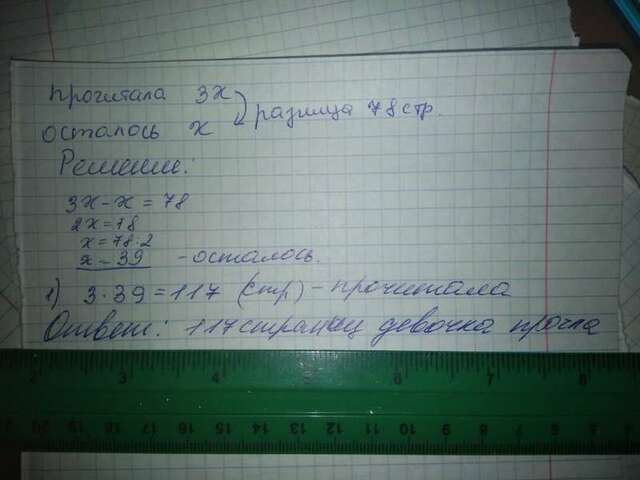 прочитала 3х
осталось х
разница 78 стр.
Решение:
3х-х=78
2х=78
х=78:2
х=39 -осталось.
1) 3·39=117 (стр) - прочитала
Ответ: 117 страниц девочка прочла
2 3 4 5 6 7 8
20 19 18 17 16 15 14 13 12 11 10 9 8 7 6 5 4